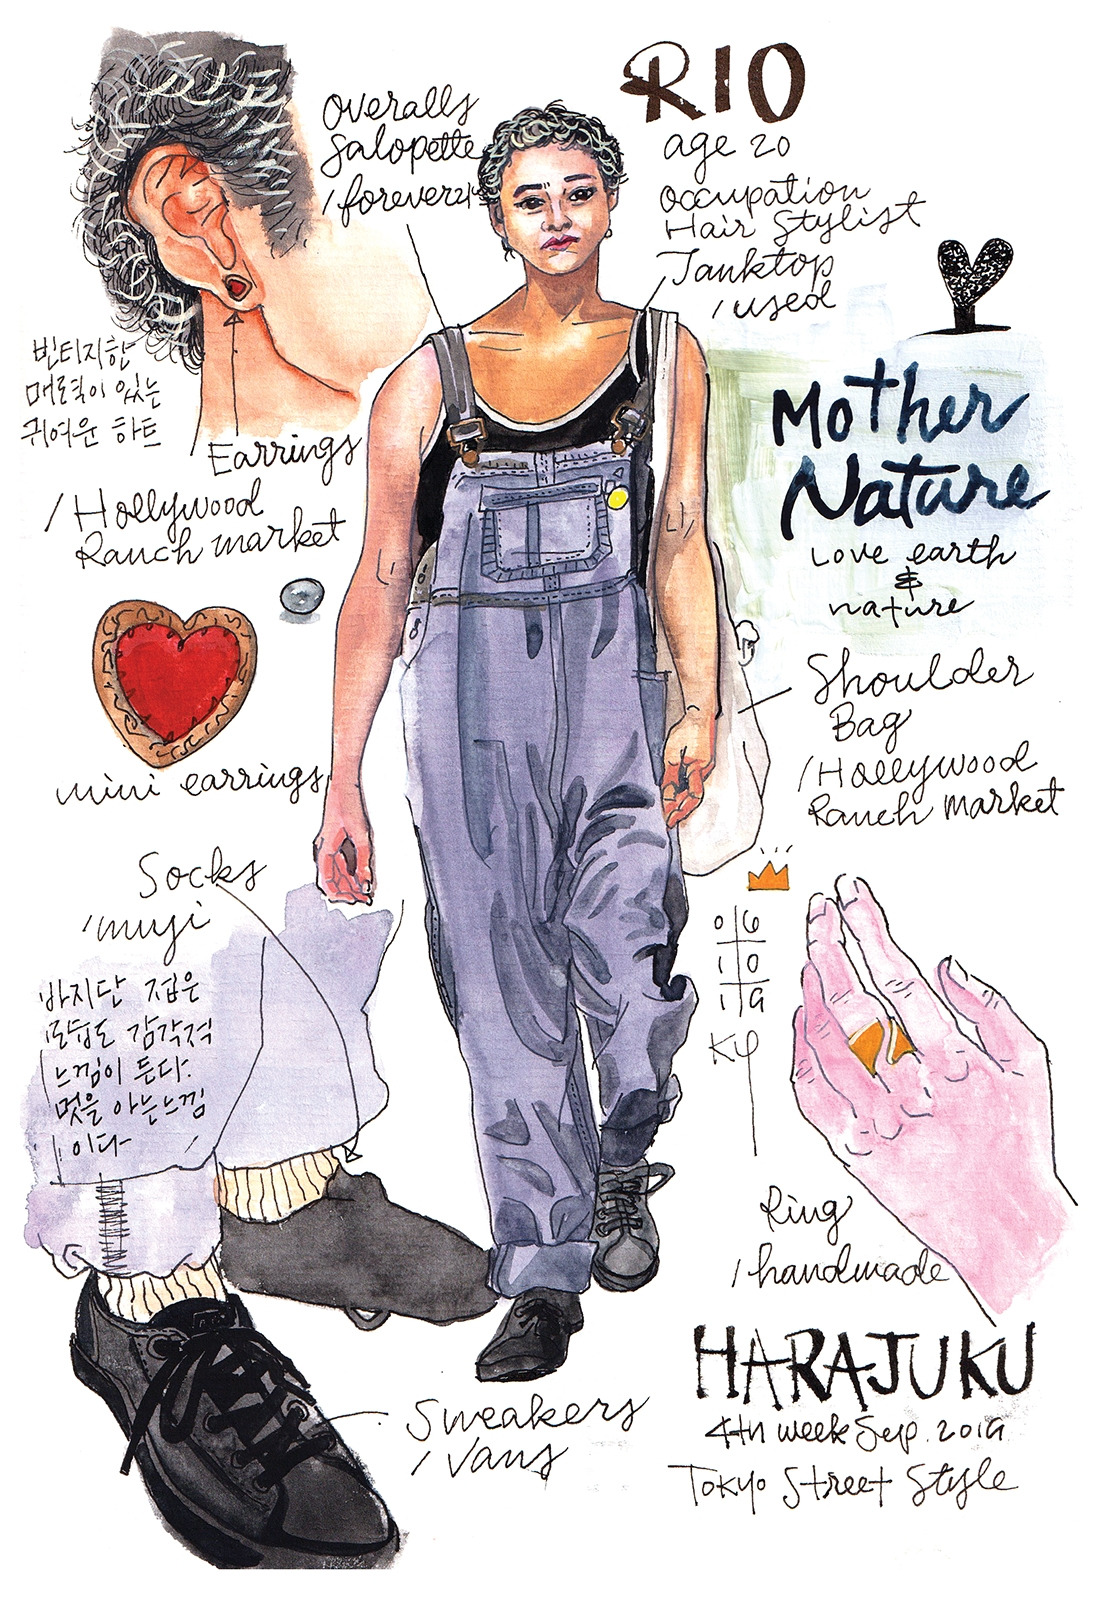 RIO
age 20
Occupation
Hair Stylist
Tanktop
/used
Overalls
Salopette
/forever21
빈티지한
매력이 있는
귀여운 하트
Earrings
/Hollywood
Ranch market
mini earrings
Mother
Nature
Love earth
&
nature
Shoulder
Bag
/Hollywood
Ranch market
Socks
/muji
바지단 접은
모습도 감각적
느낌이 든다.
멋을 아는느낌
이다
0 6
1 0
1 9
Ky
Ring
/handmade
Sneakers
/Vans
HARAJUKU
4th week Sep. 2019
Tokyo Street Style